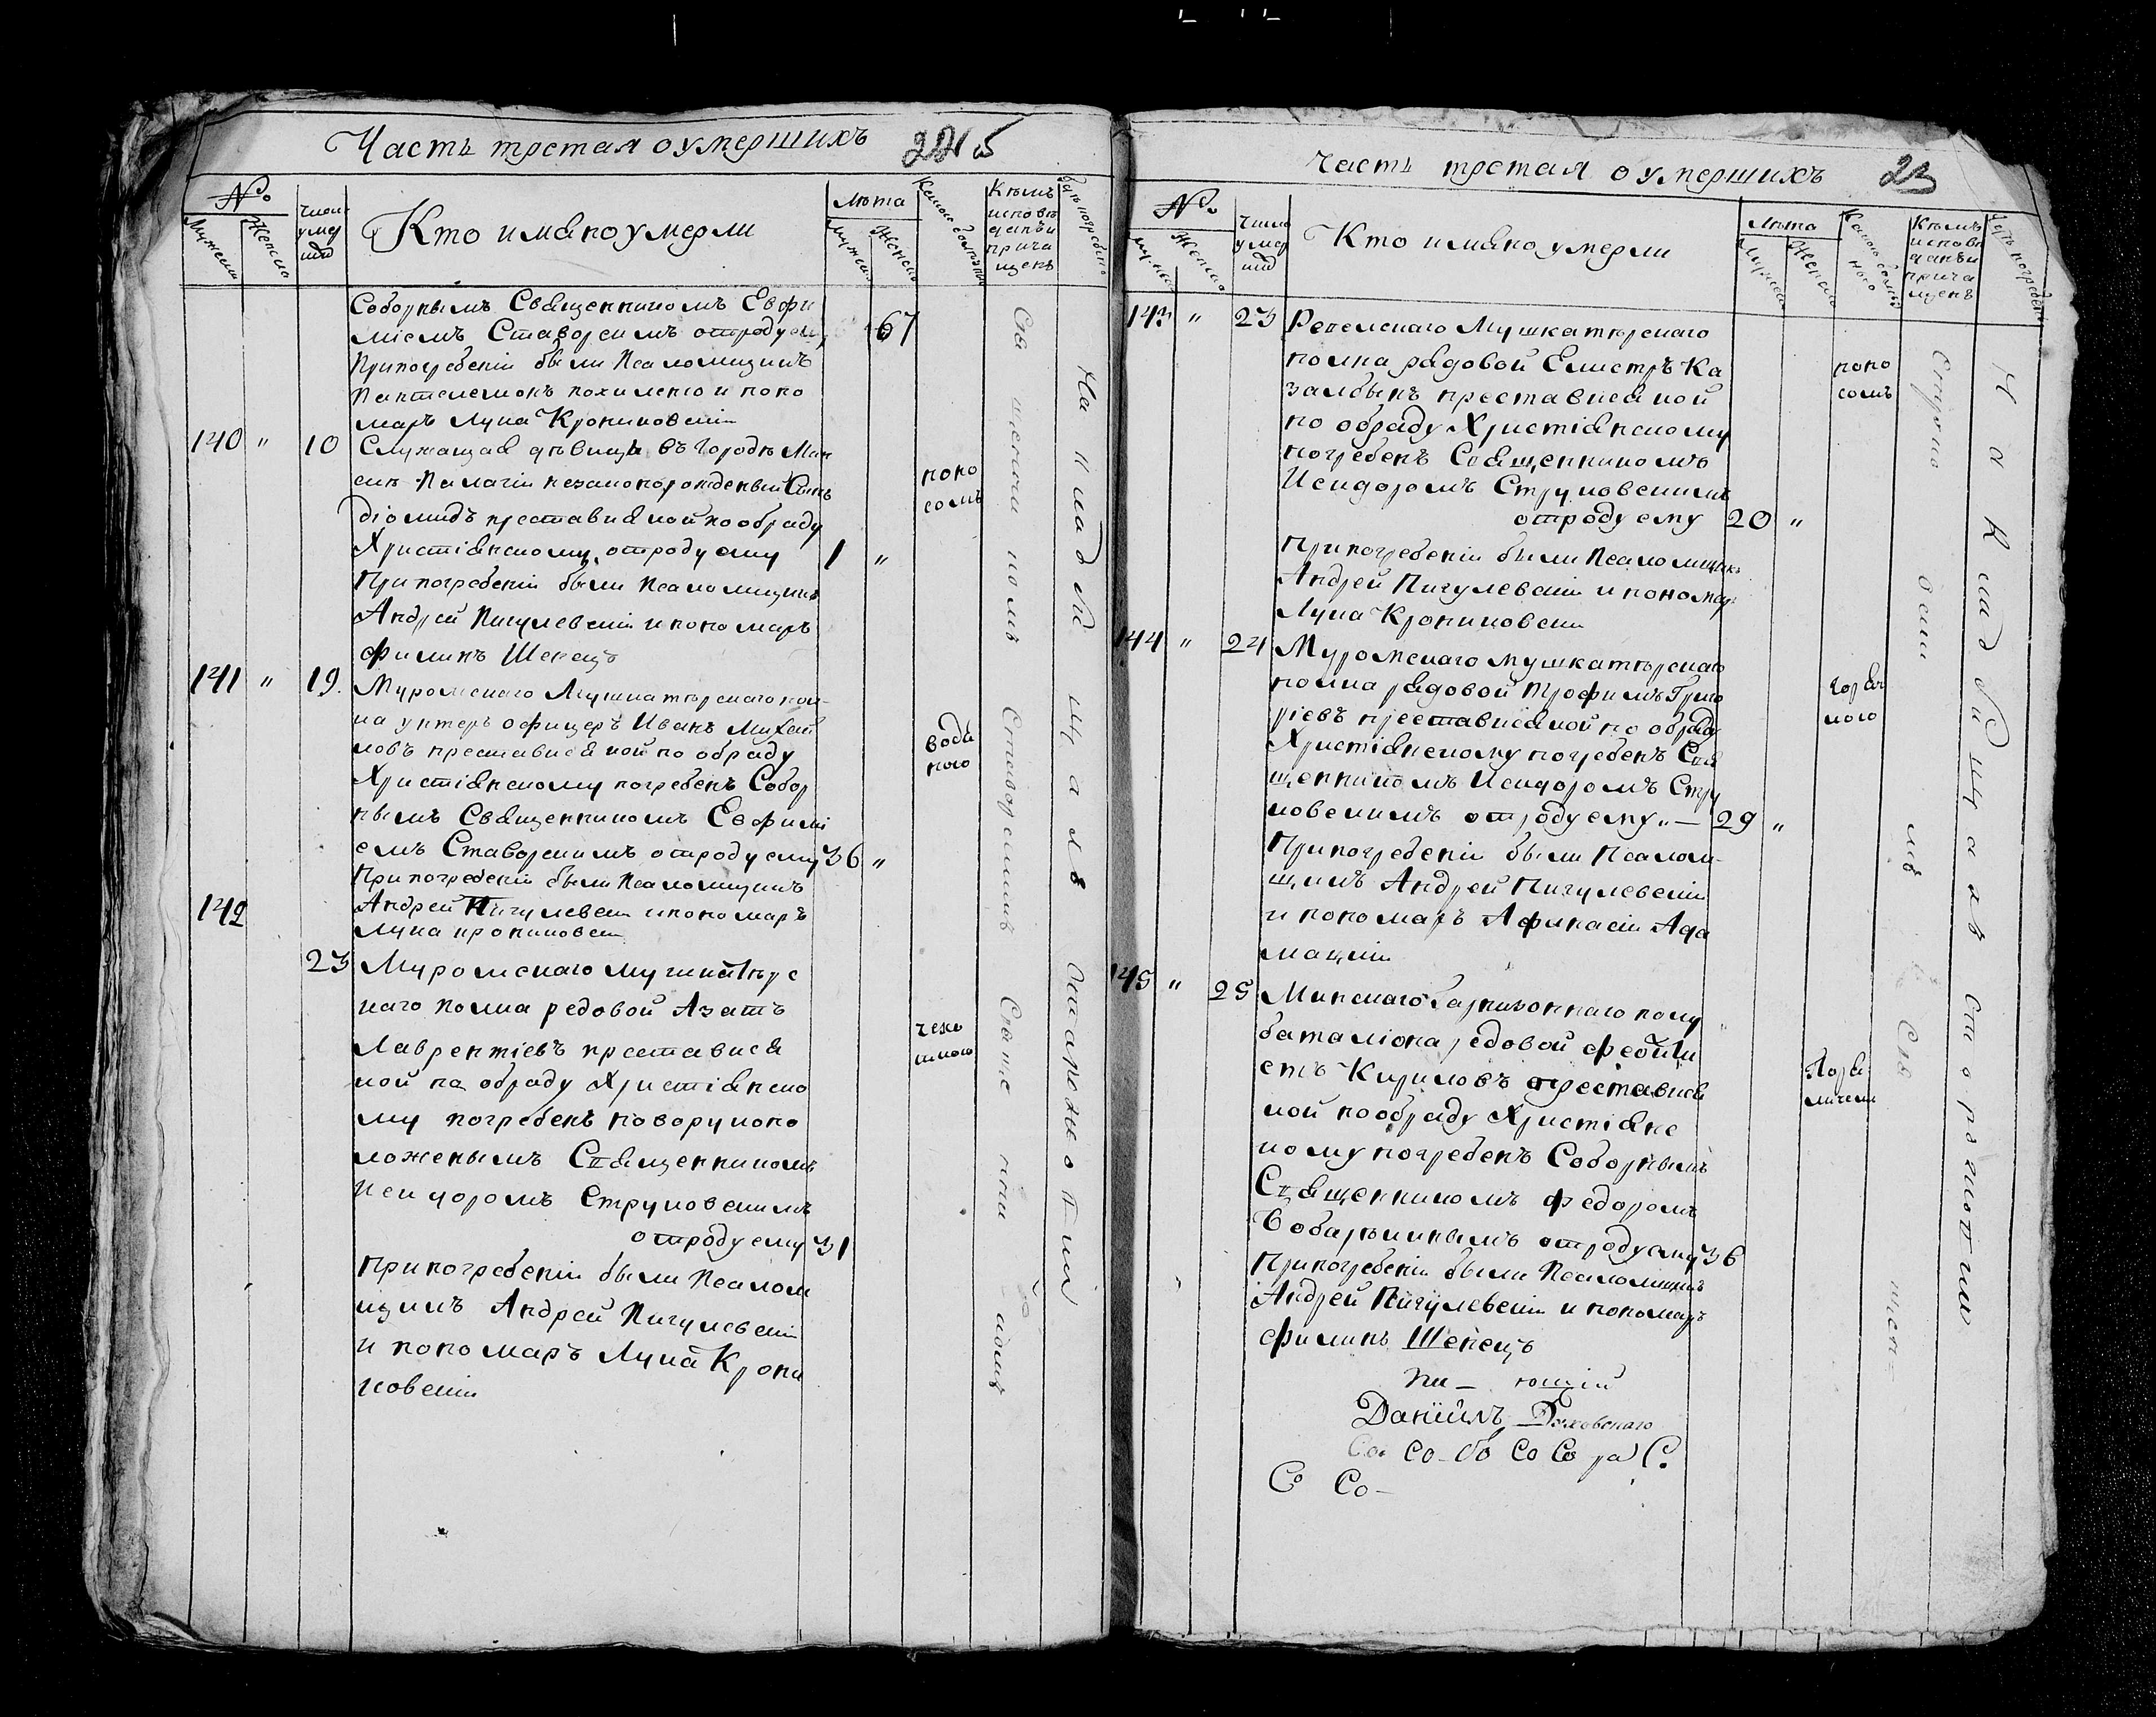 Часть третая о умершихъ 22 б
№
Мужеск Женско
число умер ших
Кто имяно умерли
Лѣта
мужеск Женско
Какою болѣзнію
Кѣмъ исповѣ данъ и прича щенъ
гдѣ погребены
Соборнымъ Священникомъ Евфи
міемъ Ставорскимъ отроду ей 67
При погребеніи были Псаломщикъ
Пантелемонъ и поно
маръ Лука Крониковскій
140 " 10 Служащая дѣвица въ Городѣ Мин
ске Палагіи незаконорожденный Сынъ
Діомидъ преставися кой по обряду
Христіянскому отроду ему 1 "
поно сомъ
При погребеніи были Псаломщикъ
Андрей Пигулевскій и пономаръ
Филипъ Шенецъ
141 " 19. Муромскаго Мушкатѣрскаго пол
ка унтеръ офицеръ Иванъ Михай
ловъ преставися кой по обряду
водя ного
Христіянскому погребенъ Собор
нымъ Священникомъ Евфимі
емъ Ставорскимъ отроду ему 36 "
При погребеніи были Псаломщикъ
Андрей Пигулевски и пономаръ
Лука крониковски
142
23 Муромскаго мушкатѣрс
каго полка редовой Азатъ
Лаврентіевъ преставися
кой по обряду Христіянско
му погребенъ поворуко
ложенымъ Священникомъ
Исидоромъ Струковскимъ
отроду ему 31
При погребеніи были Псалом
щикъ Андрей Пигулевскій
и пономаръ Лука Крони
ковскій
На Кладбищахъ Сторожовкій
Часть третая о умершихъ 23
№
муж Женско
число умер ших
Кто имяно умерли
Лѣта
Мужеск Женско
Какою болѣз нью
Кѣмъ исповѣ данъ и прича щенъ
гдѣ погребены
143 " 23 Ревелскаго Мушкатѣрскаго
полка рядовой Елистръ Ка
залбынъ преставися кой
поно сомъ
по обряду Христіянскому
погребенъ Священникомъ
Исидоромъ Струковскимъ
отроду ему 20 "
При погребеніи были Псаломщикъ
Андрей Пигулевскій и пономар
Лука Крониковски
144 " 24 Муромскаго мушкатѣрскаго
полка рядовой Трофимъ Григо
ріевъ преставися кой по обряду
горяч кою
Христіянскому погребенъ Свя
щенникомъ Исидоромъ Стру
ковскимъ отроду ему " — 29 "
При погребеніи были Псалом
щикъ Андрей Пигулевскій
и пономаръ Афинасій Ада
мацкій
145 " 25 Минскаго Гарнизоннаго полу
баталіона редовой
Кириловъ преставися
кой по обряду Христіянс
кому погребенъ Соборнымъ
Священникомъ Федоромъ
отроду ему 36
При погребеніи были Псаломщикъ
Андрей Пигулевскій и пономаръ
Филипъ Шенецъ
На Кладбищахъ Сторожовкій
Даніилъ
Со Со